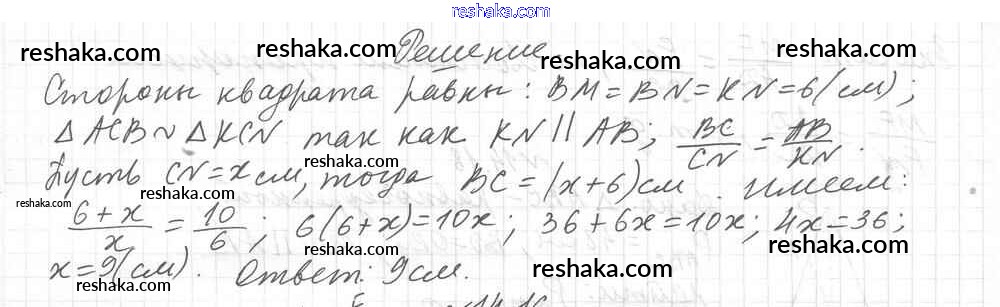 www.reshaka.com
Решение
Стороны квадрата равны: BM = BN = KN = 6 (см);
△ ACB ~ △ KCN так как KN || AB; BC/CN = AB/KN.
Пусть CN = x см, тогда BC = (x+6) см. имеем:
6+x/x = 10/6; 6(6+x)=10x; 36+6x=10x; 4x=36;
x=9(см). Ответ: 9 см.
reshaka.com
reshaka.com
reshaka.com
reshaka.com
reshaka.com
reshaka.com
reshaka.com
reshaka.com
reshaka.com
reshaka.com